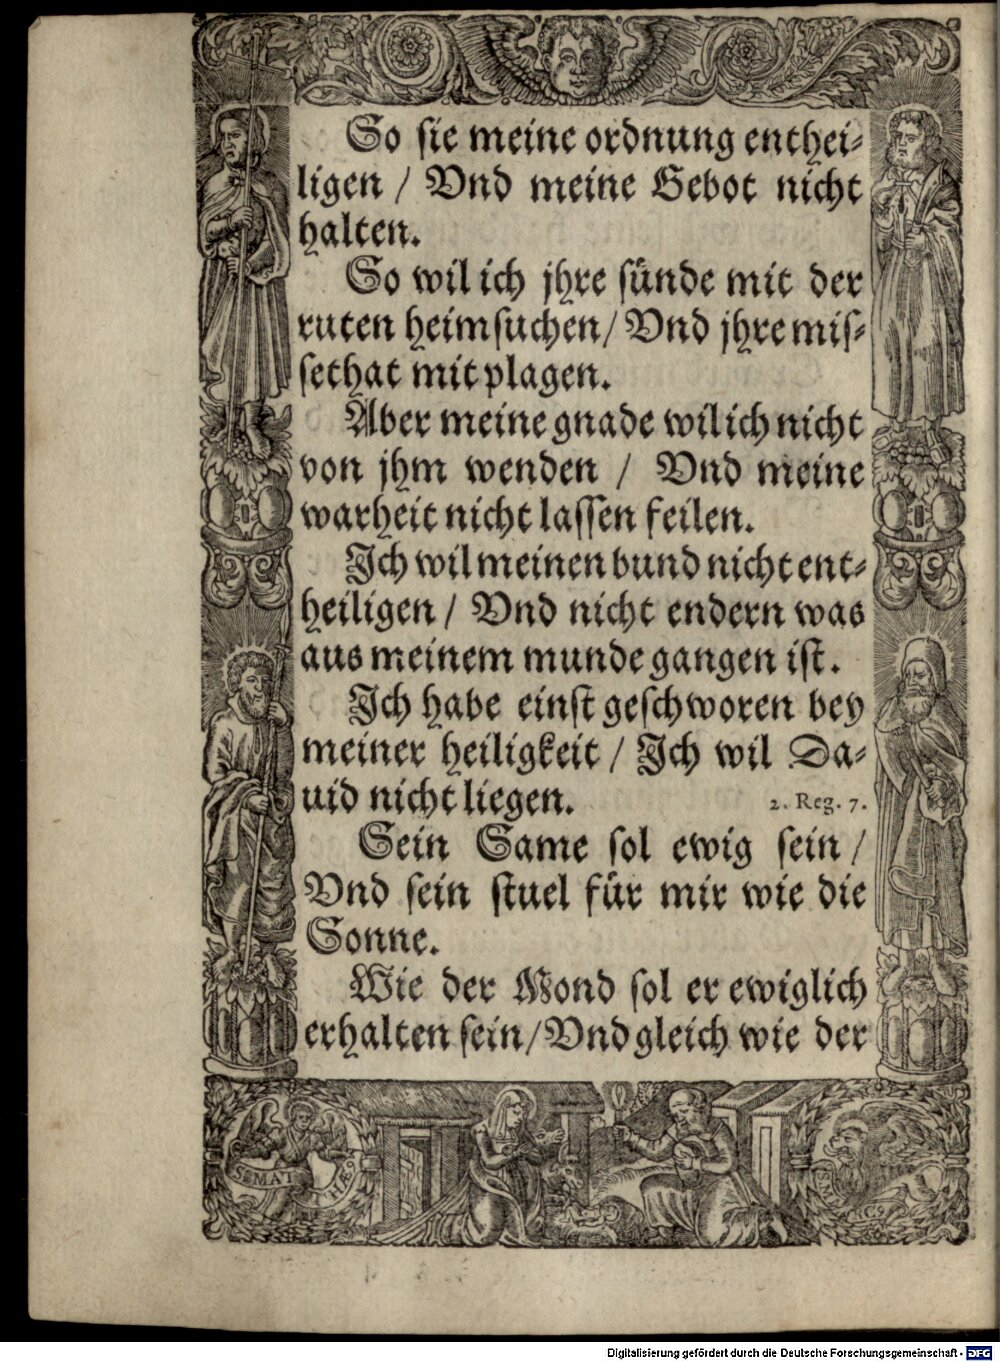 So sie meine ordnung enthei-
ligen / Vnd meine Gebot nicht
halten.
So wil ich jhre sünde mit der
ruten heimsuchen/ Vnd jhre mis-
sethat mit plagen.
Aber meine gnade wil ich nicht
von jhm wenden / Vnd meine
warheit nicht lassen feilen.
Ich wil meinen bund nicht ent-
heiligen / Vnd nicht endern was
aus meinem munde gangen ist.
Ich habe einst geschworen bey
meiner heiligkeit / Ich wil Da-
uid nicht liegen.
2. Reg. 7.
Sein Same sol ewig sein /
Vnd sein stuel für mir wie die
Sonne.
Wie der Mond sol er ewiglich
erhalten sein/ Vnd gleich wie der
S. MAT THÆ9
S. M RC9
Digitalisierung gefördert durch die Deutsche Forschungsgemeinschaft - DFG